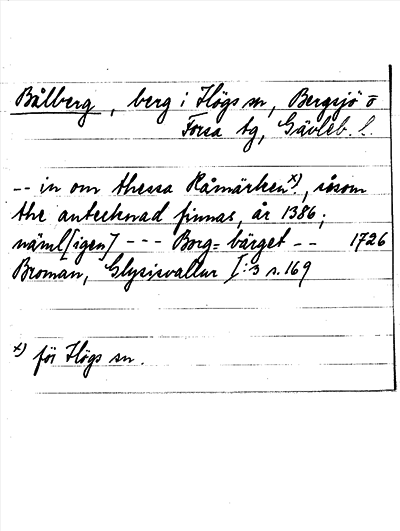 Bålberg, berg i Högs sn, Bergsjö o
Forsa tg, Gävleb. l.
-- in om thessa Råmärken x), såsom
the antecknad finnas, år 1386;
näml[igen] --- Borg=bärget -- 1726
Broman, Glysisvallur I:3 s. 169
x) för Högs sn.